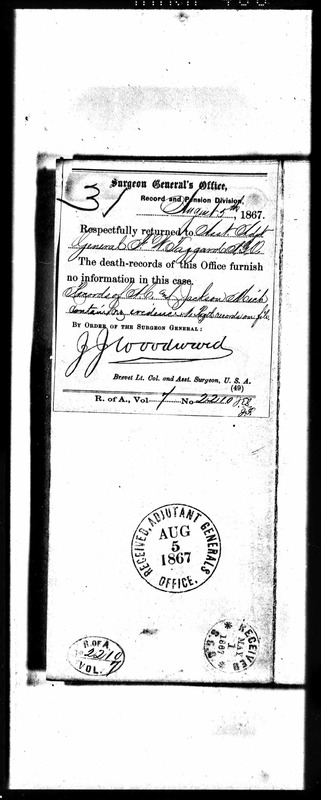 3
Surgeon General's Office,
Record and Pension Division,
August 5th, 1867.
Respectfully returned to Asst. Adjt
General W. Taggard A.G.O.
The death-records of this Office furnish
no information in this case.
Records of Jackson Mich
contain no evidence. No Regt records on file
BY ORDER OF THE SURGEON GENERAL:
J J Woodward
Brevet Lt. Col. and Asst. Surgeon, U. S. A.
(49)
R. of A., Vol 7 No 2210
RECEIVED, ADJUTANT GENERALS OFFICE.
AUG
5
1867
R. OF A.
No 2210
VOL. 7
RECEIVED
MAY
1
1867
S.G.O.